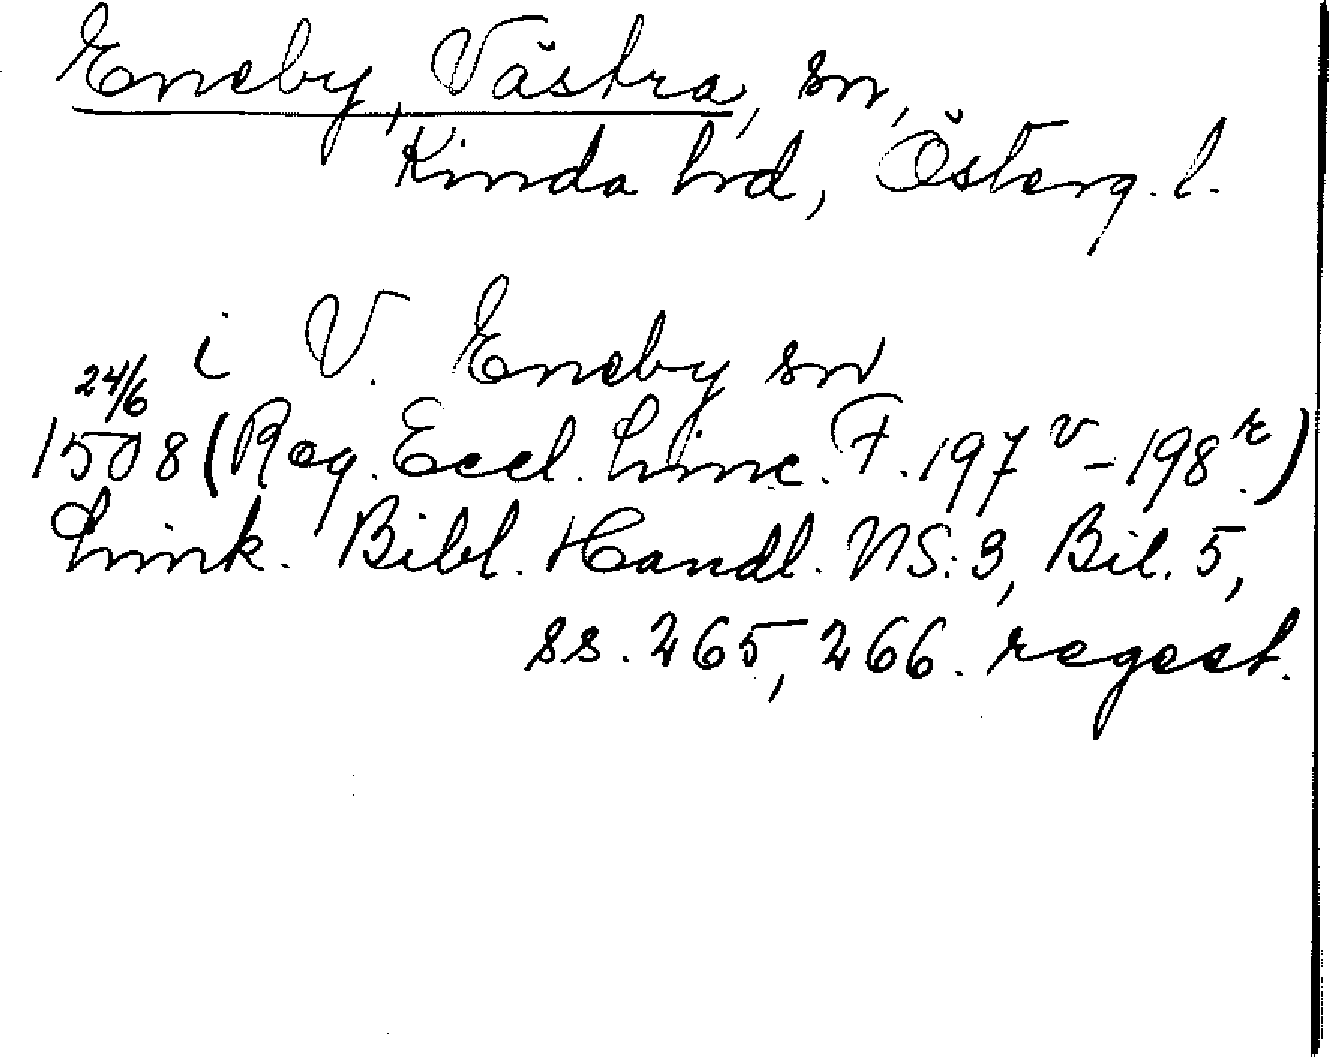 Eneby, Västra, sn,
Kinda hd, Österg. l.
i V. Eneby sn
24/6
1508 (Reg. Eccl. Linc. F. 197v - 198r.)
Link. Bibl. Handl. NS: 3, Bil. 5,
ss. 265, 266. regest.